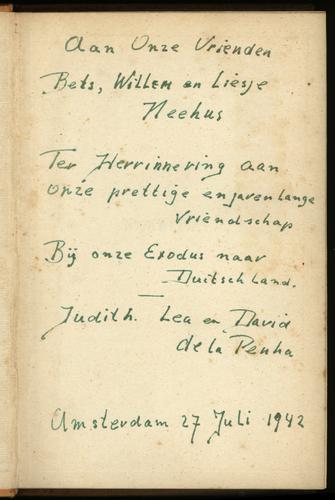 Aan Onze Vrienden
Bets, Willem en Liesje
Neehus
Ter Herrinnering aan
onze prettige en jarenlange
vriendschap
Bij onze Exodus naar
Duitschland.
Judith. Lea en David
de la Penha
Amsterdam 27 Juli 1942